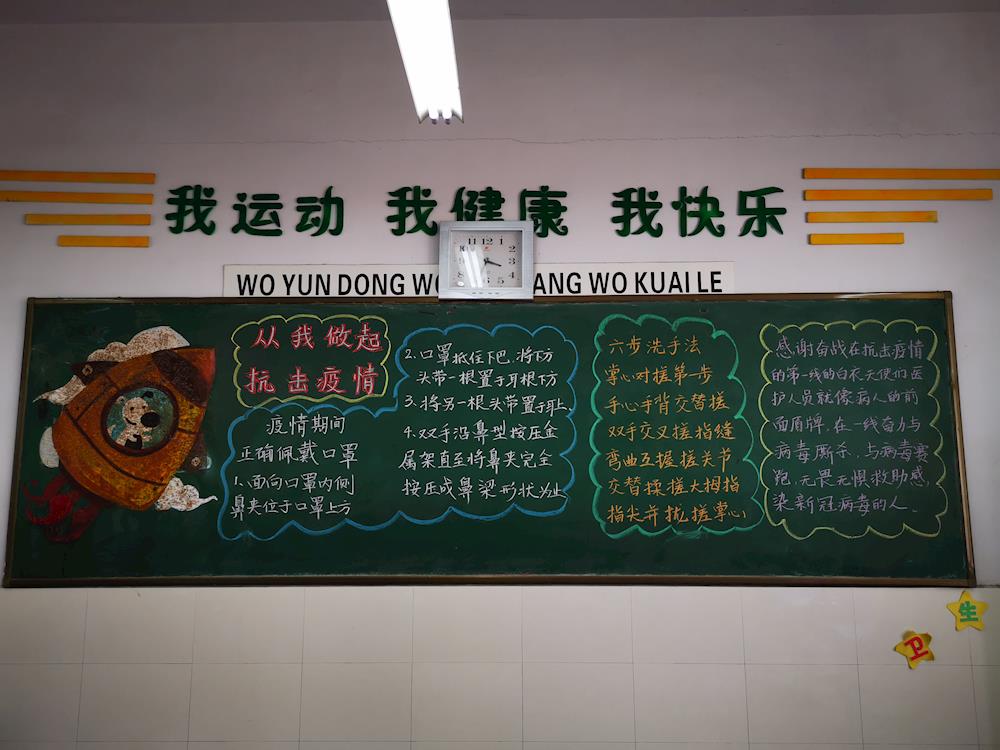 我运动 我健康 我快乐
WO YUN DONG WO ANG WO KUAI LE
11 12 1
2
3
4
5
8
从我做起
抗击疫情
疫情期间
正确佩戴口罩
1.面向口罩内侧
鼻夹位于口罩上方
2.口罩抵住下巴.将下方
头带一根置于耳根下方
3.将另一根头带置于耳上.
4.双手沿鼻型按压金
属架直至将鼻夹完全
按压成鼻梁形状为止
六步洗手法
掌心对搓第一步
手心手背交替搓
双手交叉搓指缝
弯曲互握搓关节
交替揉搓大拇指
指尖并拢搓掌心
感谢奋战在抗击疫情
的第一线的白衣天使们医
护人员就像病人的前
面盾牌.在一线奋力与
病毒厮杀.与病毒赛
跑.无畏无惧救助感
染新冠病毒的人.
卫生